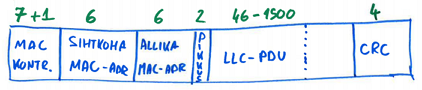 7+1 6 6 2 46-1500 4
MAC KONTR.
SIHTKOHA MAC-ADR
ALLIKA MAC-ADR
PIKKUS
LLC-PDU
CRC